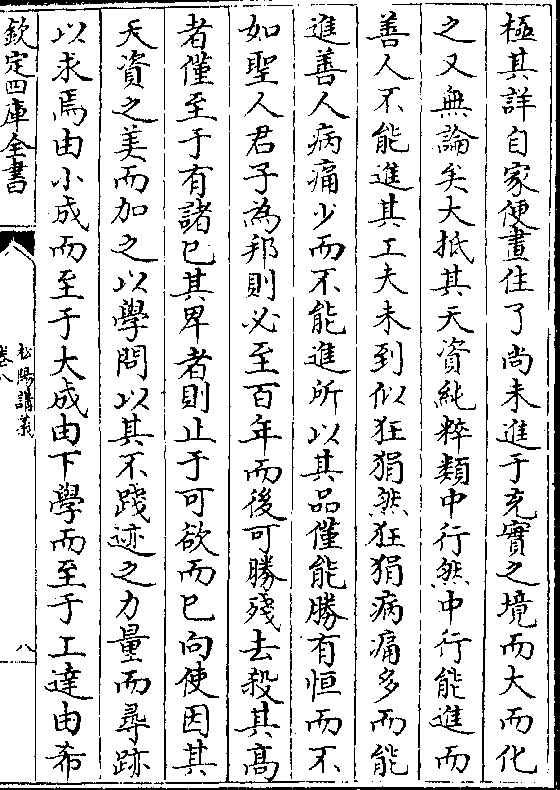 極其詳自家便畫住了尚未進于充實之境而大而化
之又無論矣大抵其天資純粹類中行然中行能進而
善人不能進其工夫未到似狂狷然狂狷病痛多而能
進善人病痛少而不能進所以其品僅能勝有恒而不
如聖人君子為邦則必至百年而後可勝殘去殺其高
者僅至于有諸已其卑者則止于可欲而已向使因其
天資之美而加之以學問以其不踐迹之力量而尋跡
以求焉由小成而至于大成由下學而至于工達由希
欽定四庫全書
松陽講義
卷八
八